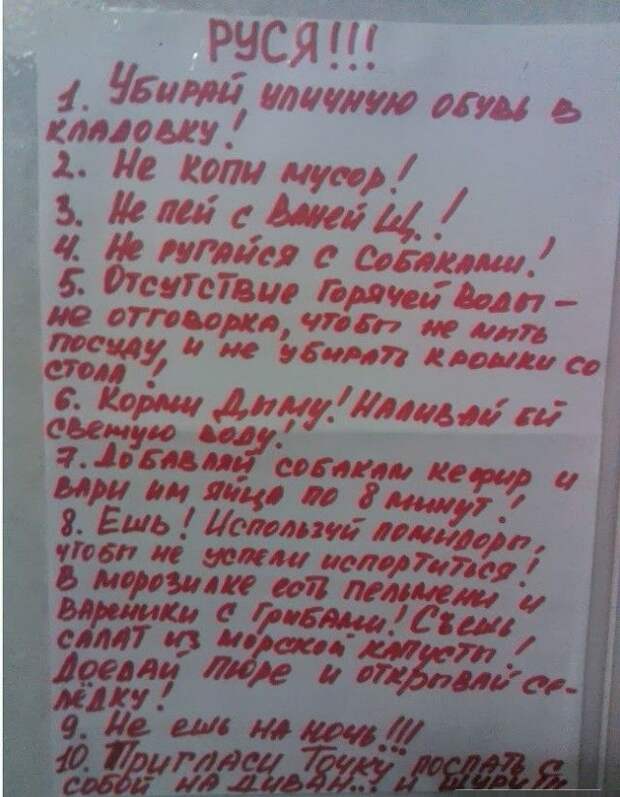 РУСЯ!!!
1. Убирай уличную обувь в
кладовку!
2. Не копи мусор!
3. Не пей с Ваней Щ.!
4. Не ругайся с собаками!
5. Отсутствие горячей воды –
не отговорка, чтобы не мыть
посуду и не убирать крошки со
стола!
6. Корми Дыму! Наливай ей
свежую воду!
7. Добавляй собакам кефир и
вари им яйца по 8 минут!
8. Ешь! Используй помидоры,
чтобы не успели испортиться!
В морозилке есть пельмени и
вареники с грибами! Съешь
салат из морской капусты!
Доедай пюре и открывай се-
лёдку!
9. Не ешь на ночь!!!
10. Пригласи Точку поспать с
собой на диван... и